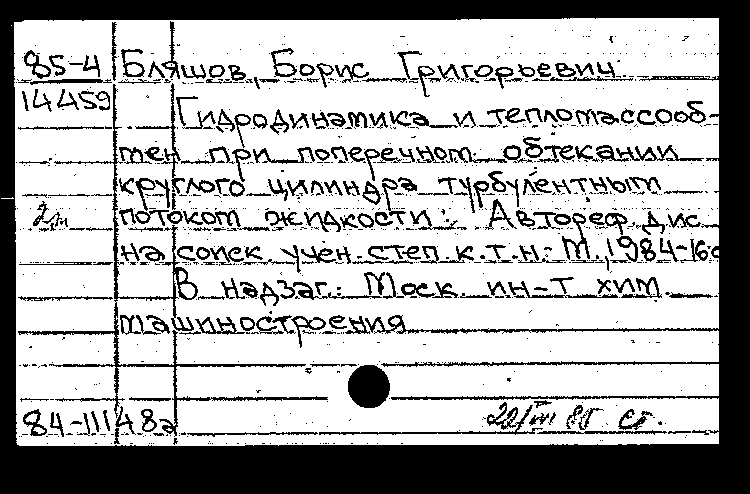 85-4 Бляшов, Борис Григорьевич
14459 Гидродинамика и тепломассооб-
мен при поперечном обтекании
круглого цилиндра турбулентным
2м потоком жидкости: Автореф. дис.
на соиск. учен. степ. к.т.н.- М., 1984-16с
В надзаг.: Моск. ин-т хим.
машиностроения
84-11148а 22/VIII 85 Ст.